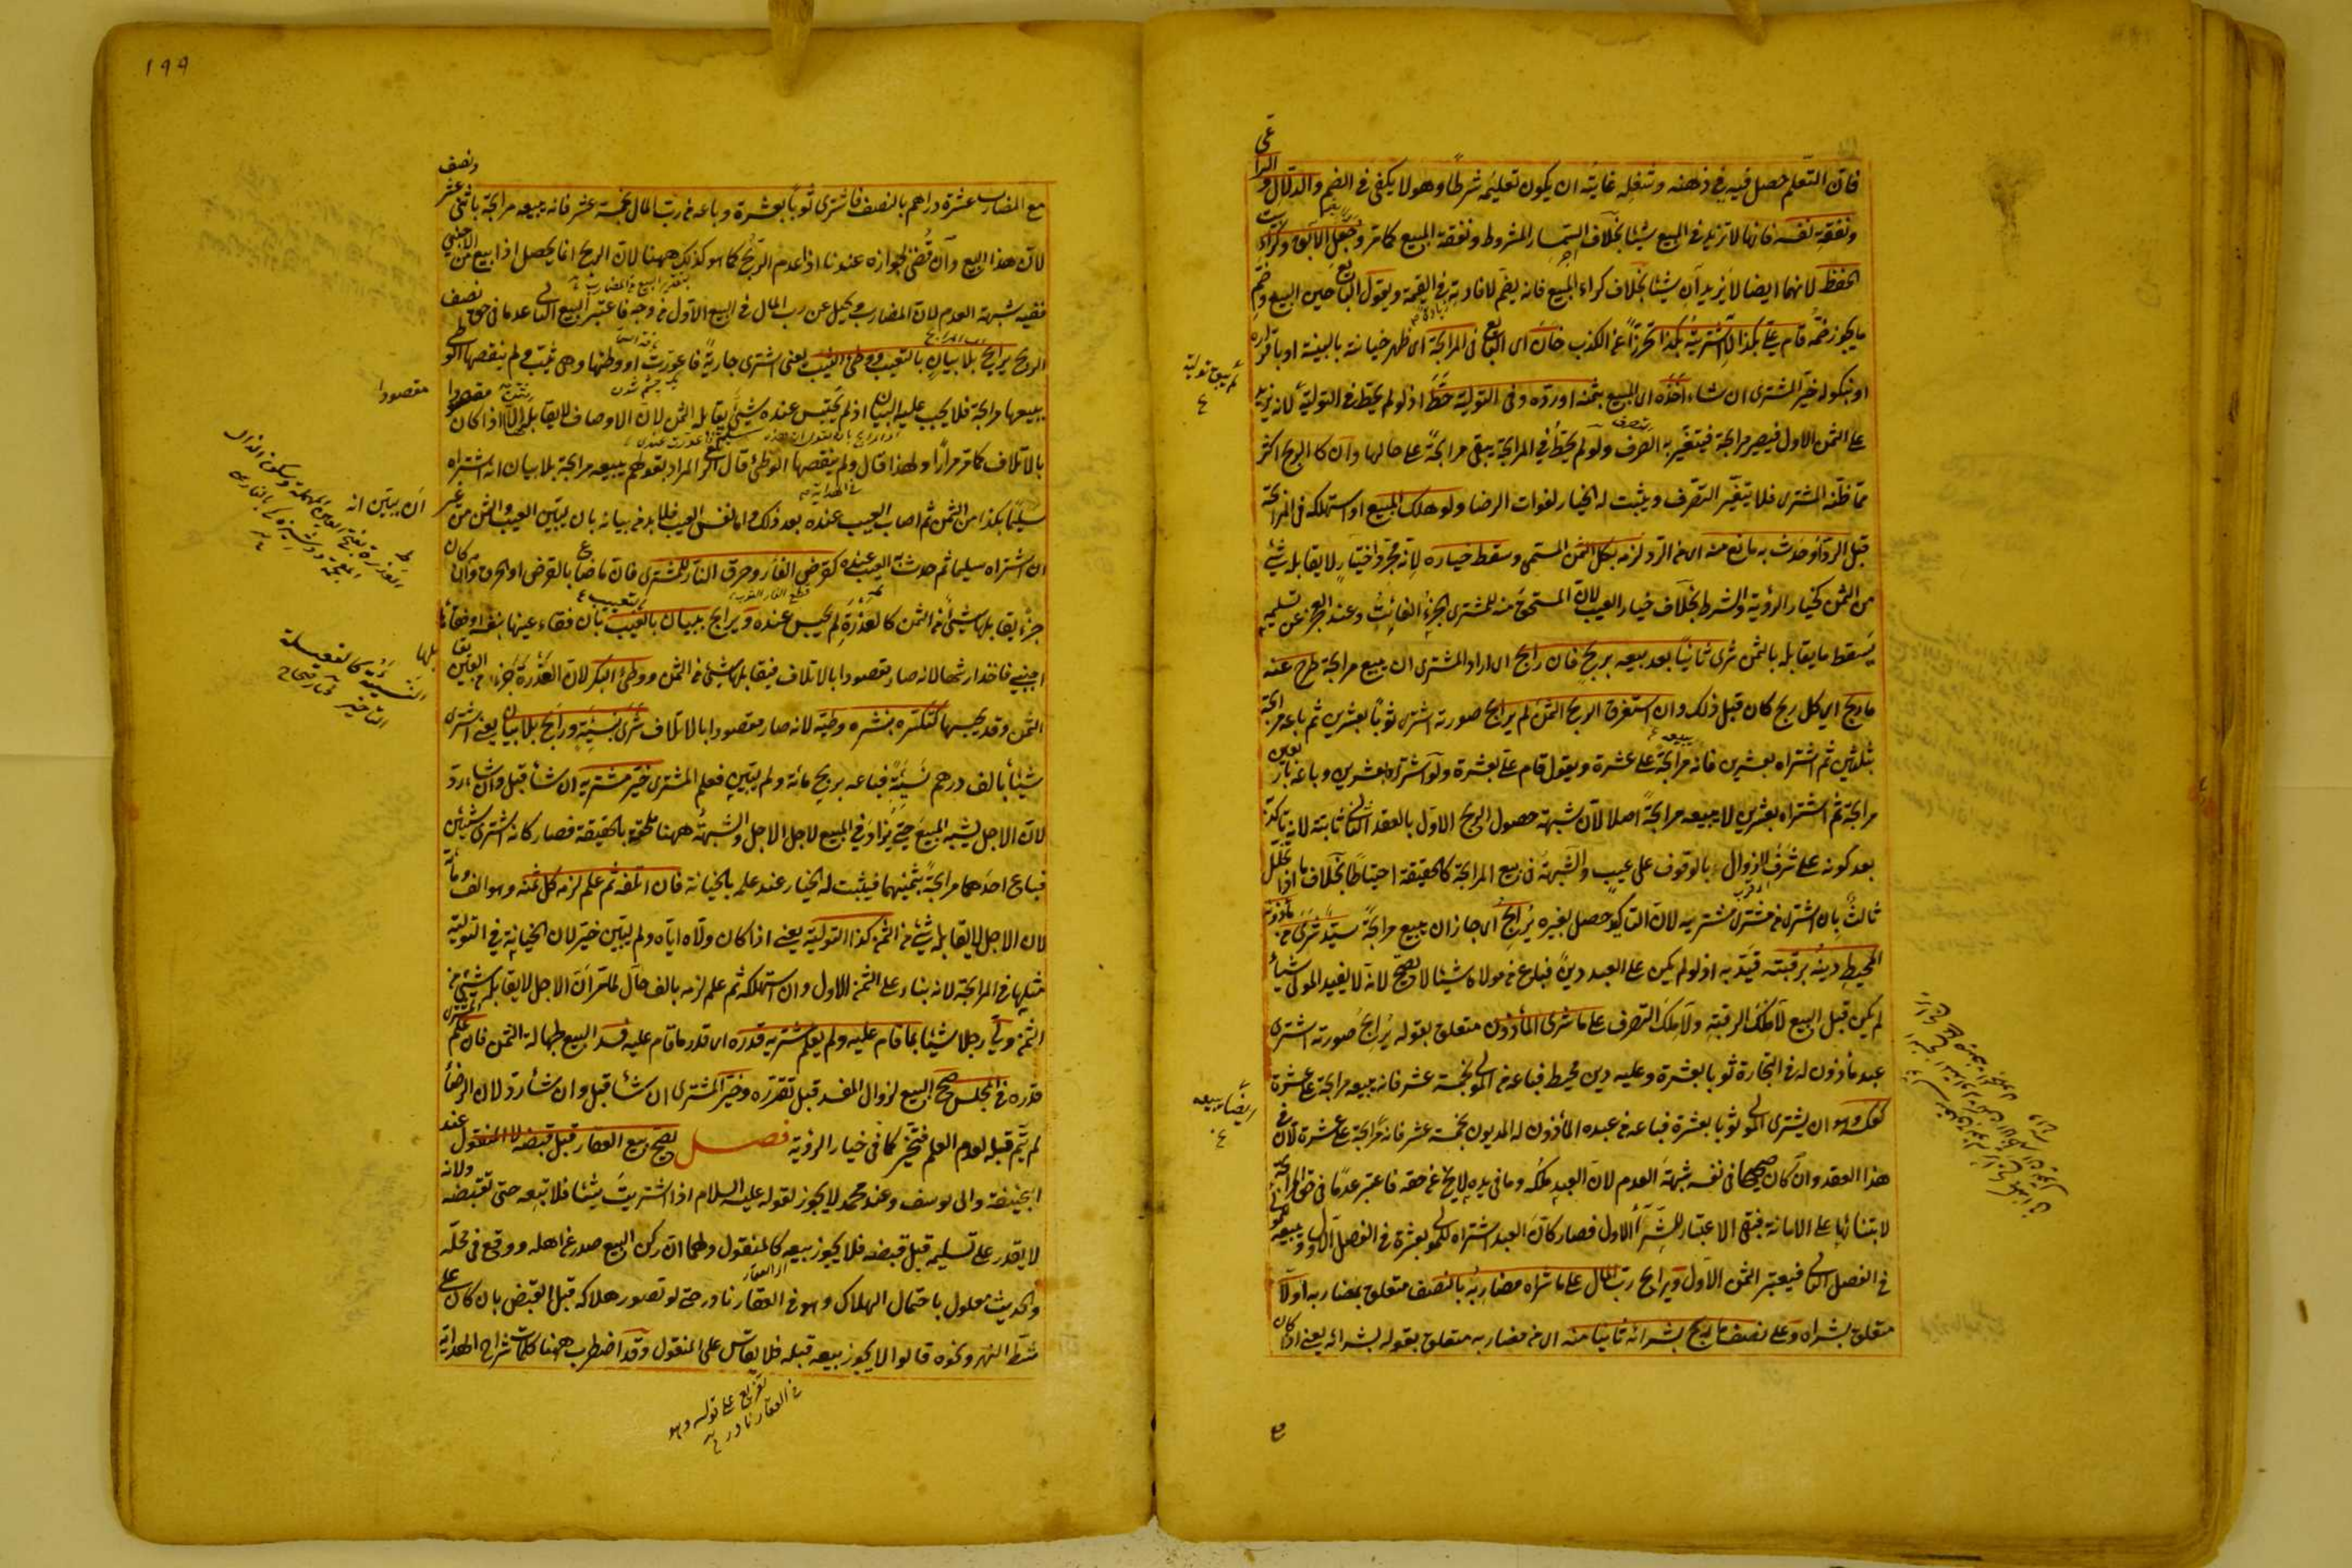 فان التعلم حصل فيه في ذهنه وشغله غايته ان يكون تعليمه شرطا وهو لا يكفى في الضم والدلال و الراعى
ونفقة نفسه فانها لا تزيد في المبيع شيئا بخلاف السمسار المشروط ونفقة المبيع كما مر وجعل الآبق وكراء بيت
الحفظ لانهما ايضا لا يزيدان شيئا بخلاف كراء المبيع فانه يضم لافادته في القيمة ويقول البائع حين البيع وضم
ما يجوز ضمه قام علي بكذا لا اشتريته بكذا تحرزا عن الكذب خان اى البائع في المرابحة اى ظهر خيانته بالبينة او باقراره
او نكوله خير المشترى ان شاء اخذه اى المبيع بثمنه او رده وفى التولية حط اذ لو لم يحط في التولية لانه يزيد
على الثمن الاول فيصير مرابحة فيتغير به التصرف ولو لم يحط في المرابحة يبقى مرابحة على حالها وان كان الربح اكثر
مما ظنه المشترى فلا يتغير التصرف ويثبت له الخيار لفوات الرضا ولو هلك المبيع او استهلكه في المرابحة
قبل الرد او حدث به ما نع منه اى من الرد لزمه بكل الثمن المسمى وسقط خياره لانه مجرد اختيار لا يقابله شئ
من الثمن كخيار الرؤية والشرط بخلاف خيار العيب لان المستحق منه للمشترى الجزء الفائت وعند العجز عن تسليمه
يسقط ما يقابله بالثمن شرى ثانيا بعد بيعه بربح فان رابح اى اراد المشترى ان يبيع مرابحة طرح عنه
ما ربح اى كل ربح كان قبل ذلك وان استغرق الربح الثمن لم يرابح صورته اشترى ثوبا بعشرين ثم باعه مرابحة
بثلثين ثم اشتراه بعشرين فانه مرابحة على عشرة ويقول قام علي بعشرة ولو اشتراه بعشرين وباعه باربعين
مرابحة ثم اشتراه بعشرين لا يبيعه مرابحة اصلا لان شبهة حصول الربح الاول بالعقد الثانى ثابتة لانه يتأكد
بعد كونه على شرف الزوال بالوقوف على عيب والشبهة في بيع المرابحة كالحقيقة احتياطا بخلاف ما اذا تخلل
ثالث بان اشترى من مشترى مشتريه لان التاكيد حصل بغيره يرابح اى جاز ان يبيع مرابحة سيد شرى من مأذونه
المحيط دينه برقبته قيد به اذ لو لم يكن على العبد دين فباع من مولاه شيئا لا يصح لانه لا يفيد المولى شيأ
لم يكن قبل البيع لا ملك الرقبة ولا ملك التصرف على ما شرى المأذون متعلق بقوله يرابح صورته اشترى
عبد مأذون له في التجارة ثوبا بعشرة وعليه دين محيط فباعه من المولى بخمسة عشر فانه يبيعه مرابحة على عشرة
كعكسه وهو ان يشترى المولى ثوبا بعشرة فباعه من عبده المأذون له المديون بخمسة عشر فانه مرابحة على عشرة لان في
هذا العقد وان كان صحيحا في نفسه شبهة العدم لان العبد ملكه وما في يده لا يخ عن حقه فاعتبر عدما في حق المرابحة
لابتنائها على الامانة فبقى الاعتبار للشراء الاول فصار كان العبد اشتراه للمولى بعشرة في الفصل الاول ويبيعه للمولى
في الفصل الثانى فيعتبر الثمن الاول ويرابح رب المال على ما شراه مضاربه بالنصف متعلق بمضاربه اولا
متعلق بشراه وعلى نصف ما ربح بشرائه ثانيا منه اى من مضاربه متعلق بقوله بشرائه يعنى اذا كان
ايضا يبيعه
١٩٩
مع المضارب عشرة دراهم بالنصف فاشترى ثوبا بعشرة وباعه من رب المال بخمسة عشر فانه يبيعه مرابحة باثنى عشر ونصف
لان هذا البيع وان قضى بجوازه عندنا اذا عدم الربح كما هو كذلك ههنا لان الربح انما يحصل اذا بيع من الاجنبى
ففيه شبهة العدم لان المضارب وكيل عن رب المال في البيع الاول من وجه فاعتبر البيع الثانى عدما في حق نصف
الربح يرابح بلا بيان بالتعيب ووطئ الثيب يعنى اشترى جارية فاعورت او وطئها وهى ثيب ولم ينقصها الوطئ
يبيعها مرابحة فلا يجب عليه البيان اذ لم يحتبس عنده شئ يقابله الثمن لان الاوصاف لا يقابلها الا اذا كان مقصودا
مقصودا
بالاتلاف كما مر مرارا ولهذا قال ولم ينقصها الوطئ قال المراد بقولهم يبيعه مرابحة بلا بيان انه اشتراه
سليما بكذا من الثمن ثم اصاب العيب عنده بعد ذلك واما نفس العيب فلا بد من بيانه بان يبين العيب والثمن من غير
ان يبين انه
ان اشتراه سليما ثم حدث به العيب عنده كقرض الفار وحرق النار للمشترى فان ما ضاع بالقرض او الحرق وان كان
جزء يقابلها شئ من الثمن كالعذرة لم يحبس عنده ويرابح ببيان بالتعييب بان فقاء عينها بنفسه او فقأها
اجنبى فاخذ ارشها لانه صار مقصودا بالاتلاف فيقابلها شئ من الثمن ووطئ البكر لان العذرة جزء من العين يقابلها
الثمن وقد حبسها كتكسره بنشره وطيه لانه صار مقصودا بالاتلاف شرى بنسيئة ورابح بلا بيان يعنى اشترى
شيئا بالف درهم نسيئة فباعه بربح مائة ولم يبين فعلم المشترى خير مشتريه ان شاء قبل وان شاء رد
لان الاجل يشبه المبيع حتى يزاد في المبيع لاجل الاجل والشبهة ههنا ملحقة بالحقيقة فصار كانه اشترى شيئين
فباع احدهما مرابحة بثمنيهما فيثبت له الخيار عند علمه بالخيانة فان اتلفه ثم علم لزمه كل ثمنه وهو الف ومائة
لان الاجل لا يقابله شئ من الثمن كذا التولية يعنى اذا كان ولاه اياه ولم يبين خير لان الخيانة في التولية
مثلها في المرابحة لانه بناء على الثمن الاول وان استهلكه ثم علم لزمه بالف حال لما مر ان الاجل لا يقابله شئ من
الثمن ولى رجلا شيئا بما قام عليه ولم يعلم مشتريه قدره اى قدر ما قام عليه فسد البيع لجهالة الثمن فان علم المشترى
قدره في المجلس صح البيع لزوال المفسد قبل تقرره وخير المشترى ان شاء قبل وان شاء رد لان الرضاء
لم يتم قبله لعدم العلم فيتخير كما في خيار الرؤية فصل يصح بيع العقار قبل قبضه لا المنقول عند
ابى حنيفة وابى يوسف وعند محمد لا يجوز لقوله عليه السلام اذا اشتريت شيئا فلا تبعه حتى تقبضه ولانه
لا يقدر على تسليمه قبل قبضه فلا يجوز بيعه كالمنقول ولهما ان ركن البيع صدر عن اهله ووقع في محله
والحديث معلول باحتمال الهلاك وهو في العقار نادر حتى لو تصور هلاكه قبل القبض بان كان على
شط النهر ونحوه قالوا لا يجوز بيعه قبله فلا يقاس على المنقول وقد اضطرب ههنا كلمات شراح الهداية
تفريع على قوله وهو
في العقار نادر